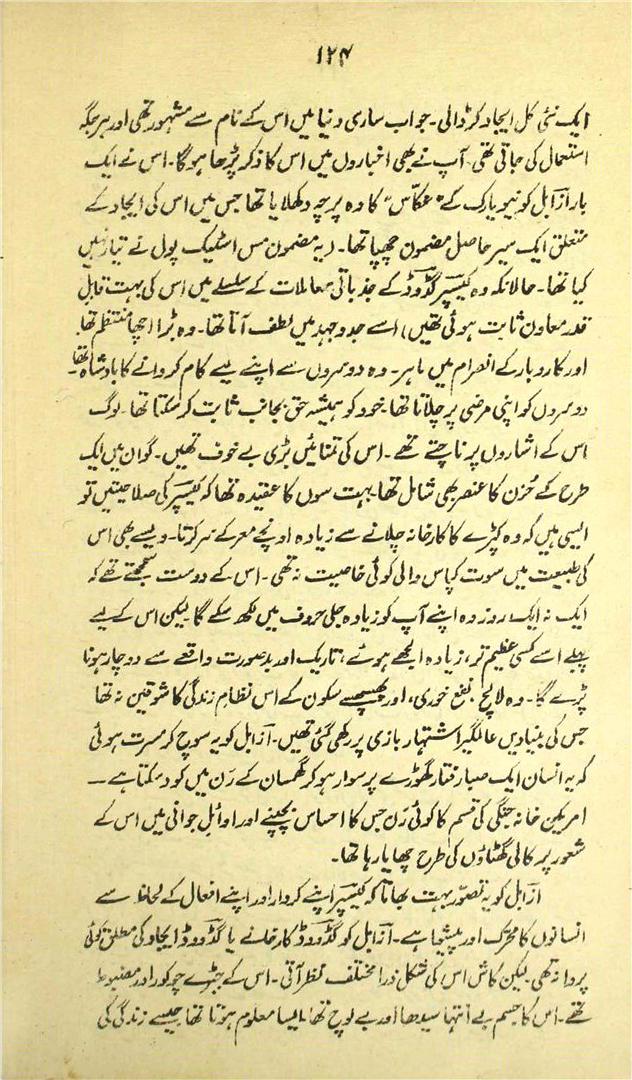 ۱۲۴
ایک نئی کل ایجاد کر ڈالی۔ جو اب ساری دنیا میں اس کے نام سے مشہور تھی اور ہر جگہ
استعمال کی جاتی تھی۔ آپ نے بھی اخباروں میں اس کا ذکر پڑھا ہو گا۔ اس نے ایک
بار ازابل کو نیویارک کے "عکاس" کا وہ پرچہ دکھلایا تھا جس میں اس کی ایجاد کے
متعلق ایک سیر حاصل مضمون چھپا تھا۔ (یہ مضمون مس اسٹیک پول نے تیار نہیں
کیا تھا۔ حالانکہ وہ کیسپر گڈووڈ کے جذباتی معاملات کے سلسلے میں اس کی بہت قابل
قدر معاون ثابت ہوئی تھیں) اسے جدوجہد میں لطف آتا تھا۔ وہ بڑا اچھا منتظم تھا۔
اور کاروبار کے انصرام میں ماہر۔ وہ دوسروں سے اپنے لیے کام کروانے کا بادشاہ تھا۔
دوسروں کو اپنی مرضی پر چلاتا تھا۔ خود کو ہمیشہ حق بجانب ثابت کر سکتا تھا۔ لوگ
اس کے اشاروں پر ناچتے تھے۔ اس کی تمنائیں بڑی بے خوف تھیں۔ گو ان میں ایک
طرح کے حُزن کا عنصر بھی شامل تھا۔ بہت سوں کا عقیدہ تھا کہ کیسپر کی صلاحیتیں تو
ایسی ہیں کہ وہ کپڑے کا کارخانہ چلانے سے زیادہ اونچے معرکے سر کرتا۔ ویسے بھی اس
کی طبیعت میں سوت کپاس والی کوئی خاصیت نہ تھی۔ اس کے دوست سمجھتے تھے کہ
ایک نہ ایک روز وہ اپنے آپ کو زیادہ جلی حروف میں لکھ سکے گا لیکن اس کے لیے
پہلے اسے کسی عظیم تر، زیادہ الجھے ہوئے، تاریک اور بدصورت واقعے سے دوچار ہونا
پڑے گا۔ وہ لالچ، نفع خوری، اور پھسپھسے سکون کے اس نظام زندگی کا شوقین نہ تھا
جس کی بنیادیں عالمگیر اشتہار بازی پر رکھی گئی تھیں۔ آزابل کو یہ سوچ کر مسرت ہوئی
کہ یہ انسان ایک صبا رفتار گھوڑے پر سوار ہو کر گھمسان کے رَن میں کود سکتا ہے ۔۔
امریکن خانہ جنگی کی قسم کا کوئی رَن جس کا احساس بچپنے اور اوائل جوانی میں اس کے
شعور پر کالی گھٹاؤں کی طرح چھایا رہا تھا۔
ازابل کو یہ تصوّر بہت بھاتا کہ کیسپر اپنے کردار اور اپنے افعال کے لحاظ سے
انسانوں کا محرک اور پیشوا ہے۔ آزابل کو گڈووڈ کارخانے یا گڈووڈ ایجاد کی مطلق کوئی
پروا نہ تھی لیکن کاش اس کی شکل ذرا مختلف نظر آتی۔ اس کے جبڑے چوکور اور مضبوط
تھے۔ اس کا جسم بے انتہا سیدھا اور بے لوچ تھا۔ ایسا معلوم ہوتا تھا جیسے زندگی کی